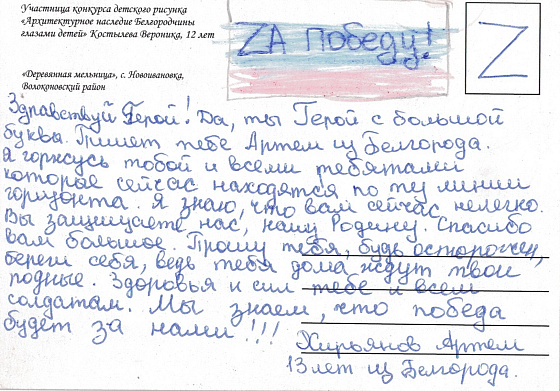 Участница конкурса детского рисунка
«Архитектурное наследие Белгородчины
глазами детей» Костылева Вероника, 12 лет
«Деревянная мельница», с. Новоивановка,
Волоконовский район
ZA победу!
Z
Здравствуй Герой! Да, ты Герой с большой
буквы. Пишет тебе Артем из Белгорода.
Я горжусь тобой и всеми ребятами
которые сейчас находятся по ту линии
горизонта. Я знаю, что вам сейчас нелегко.
Вы защищаете нас, нашу Родину. Спасибо
вам большое. Прошу тебя, будь осторожен,
береги себя, ведь тебя дома ждут твои
родные. Здоровья и сил тебе и всем
солдатам. Мы знаем, что победа
будет за нами!!!
Хирьянов Артем
13 лет из Белгорода.